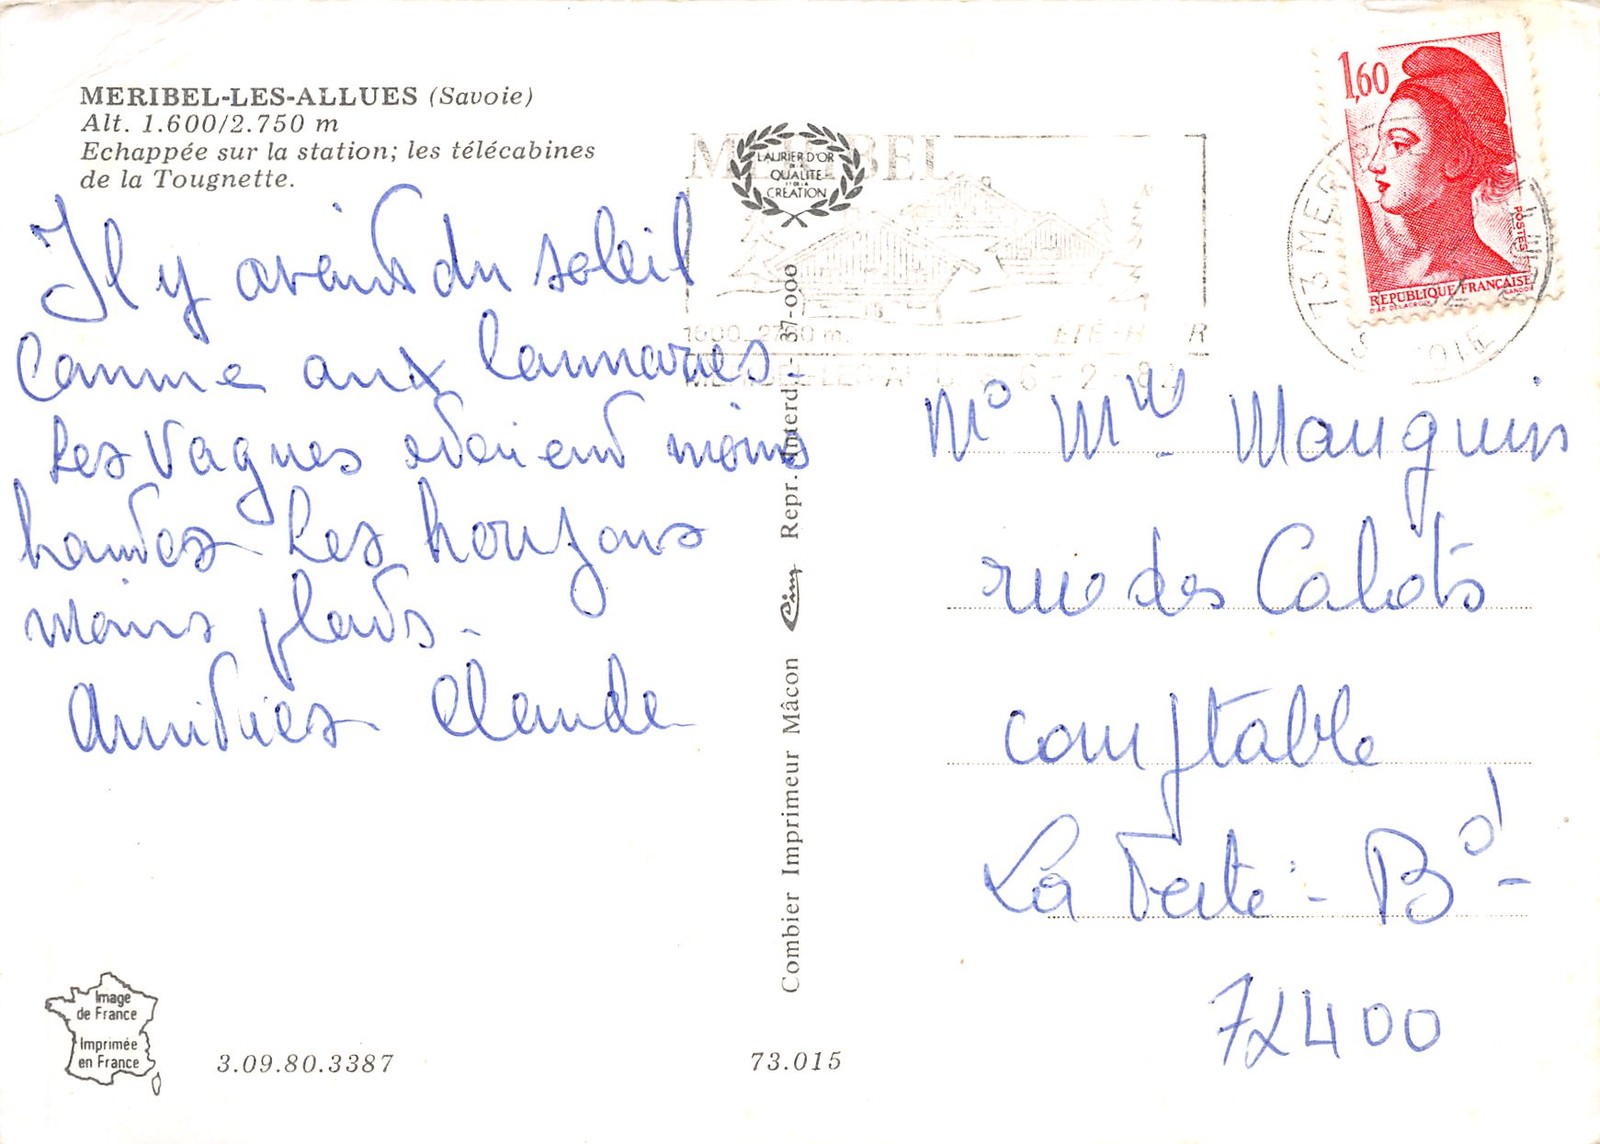 MERIBEL-LES-ALLUES (Savoie)
Alt. 1.600/2.750 m
Echappée sur la station; les télécabines
de la Tougnette.
Il y avait du soleil
Comme aux
Les vagues étaient moins
hautes Les horizons
moins plats.
Amitiés Claude
LAURIER D'OR
DE LA
QUALITE
ET DE LA
CREATION
MERIBEL
1,60
POSTES
REPUBLIQUE FRANÇAISE
D'AP. DELACROIX GANDON
73 MERIBEL
Combier Imprimeur Mâcon Cim Repr. Interd. - 37-000
Mauguin
rue des Calots
comptable
La Ferté - Bd -
72400
Image
de France
Imprimée
en France
3.09.80.3387
73.015